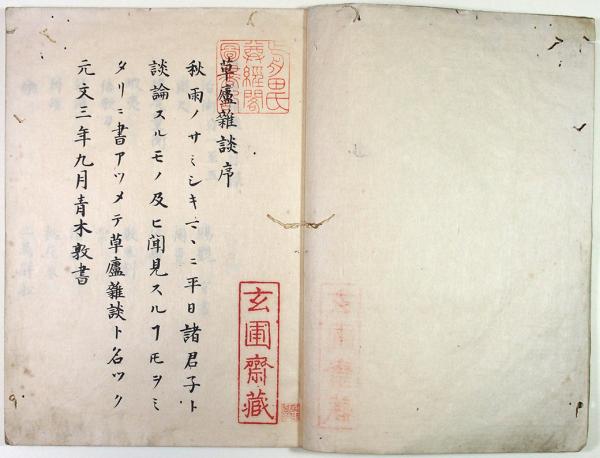 草廬雜談序
秋雨ノサミシキマヽニ平日諸君子ト
談論スルモノ及ヒ聞見スルヿ𪜈ヲミ
タリニ書アツメテ草廬雜談ト名ツク
元文三年九月青木敦書
玄圃齋藏